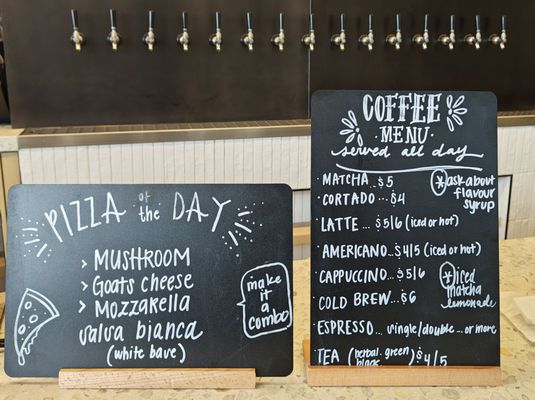 PIZZA of the DAY
> MUSHROOM
> Goats cheese
> MOZZARELLA
salsa bianca
(white base)
make it
a
combo
COFFEE
MENU
served all day
MATCHA $5
CORTADO... $4
LATTE ... $5/6 (iced or hot)
AMERICANO... $4/5 (iced or hot)
CAPPUCCINO... $5/6
COLD BREW... $6
ESPRESSO... single/double... or more
TEA (herbal. green
black) $4/5
*ask about
flavour
syrup
*iced
matcha
lemonade